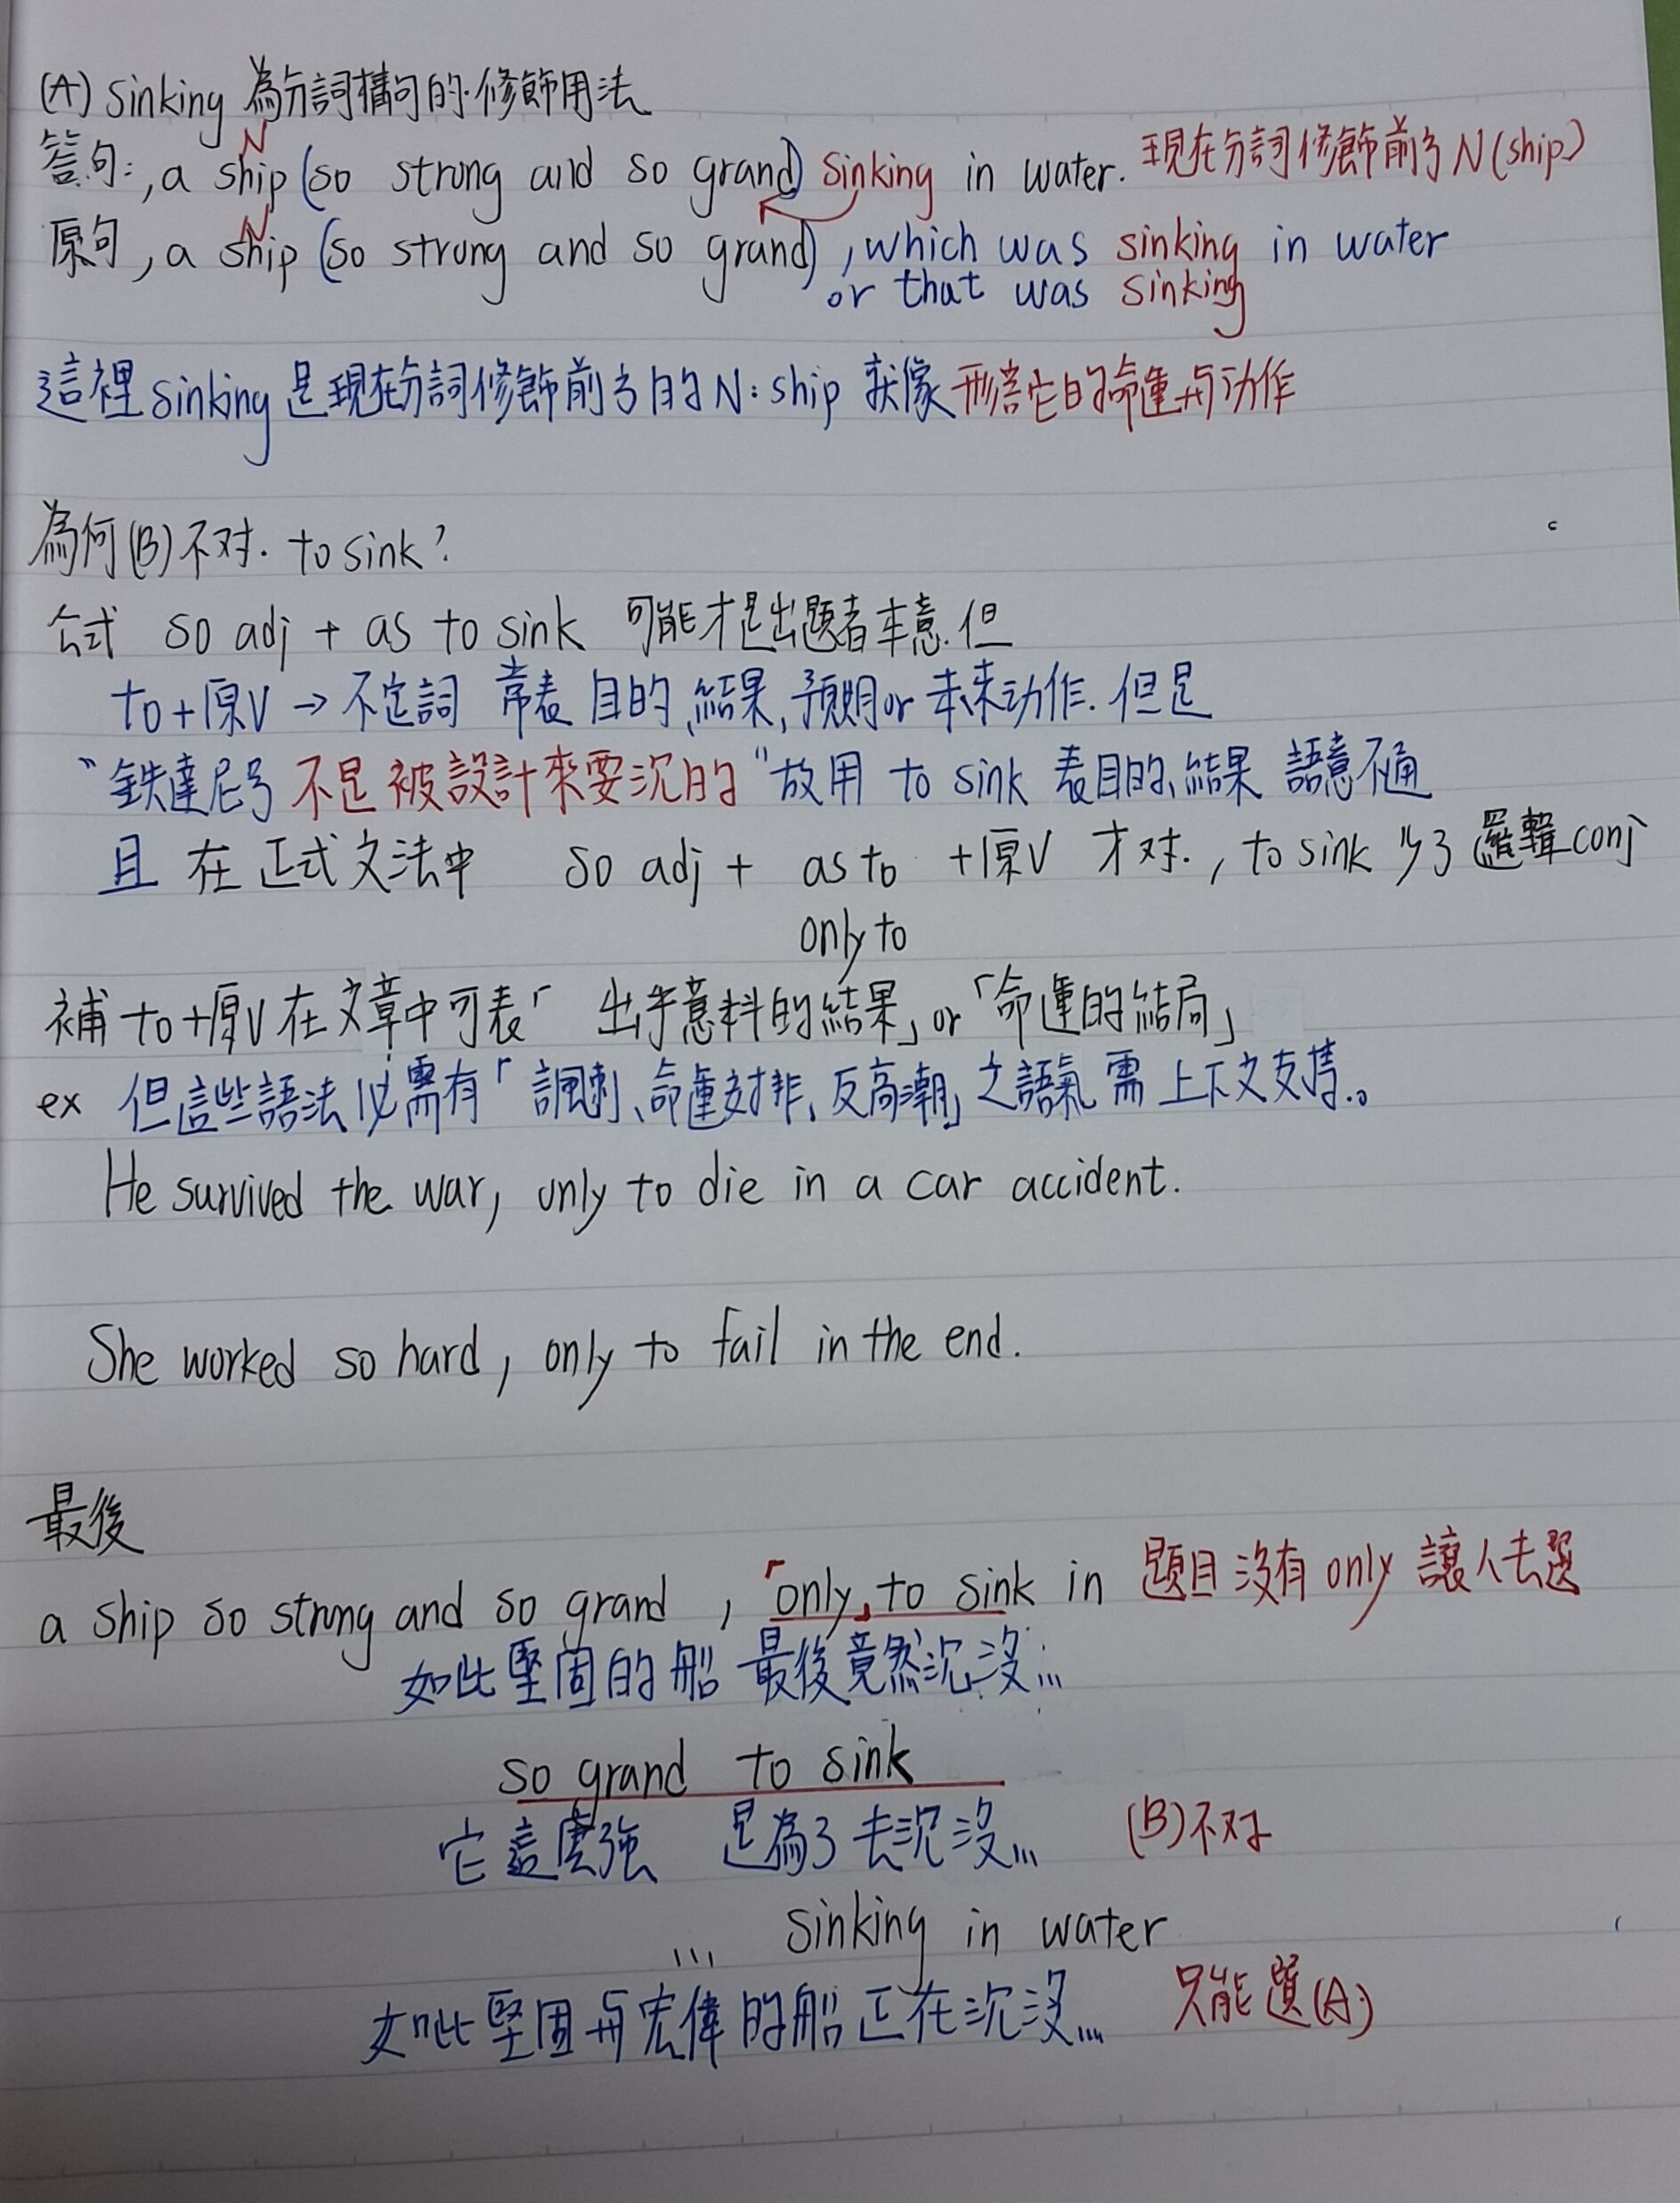 (A) sinking 為分詞構句的修飾用法
N
答句:, a ship (so strong and so grand) sinking in water. 現在分詞修飾前方N(ship)
N
原句, a ship (so strong and so grand), which was sinking in water
or that was sinking
這裡sinking是現在分詞修飾前方的N:ship 就像形容它的命運与动作
為何(B)不对. to sink?
公式 so adj + as to sink 可能才是出題者本意.但
to+原V → 不定詞 常表 目的、結果、預期or 未來动作. 但是
"鉄達尼号 不是被設計來要沉的" 故用 to sink 表目的、結果 語意不通
且 在正式文法中 so adj + as to +原V 才对., to sink 少了邏輯conj
only to
補 to+原V在文章中可表「出乎意料的結果」or「命運的結局」
ex 但這些語法必需有「諷刺、命運安排、反高潮」之語氣 需上下文支持.。
He survived the war, only to die in a car accident.
She worked so hard, only to fail in the end.
最後
a ship so strong and so grand , 「only」 to sink in 題目沒有only 讓人去選
如此堅固的船 最後竟然沉沒...
so grand to sink
它這麼強 是為了去沉沒... (B)不对
... sinking in water
如此堅固与宏偉的船正在沉沒... 只能選(A)